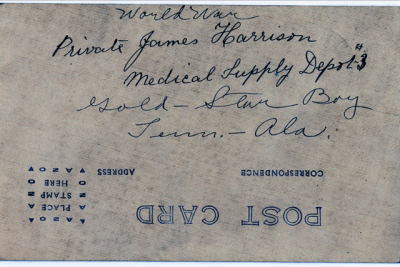 World War
Private James Harrison
Medical Supply Depot #3
Gold-Star Boy
Tenn.-Ala.
POST CARD
CORRESPONDENCE
ADDRESS
PLACE
STAMP
HERE
AZO
AZO